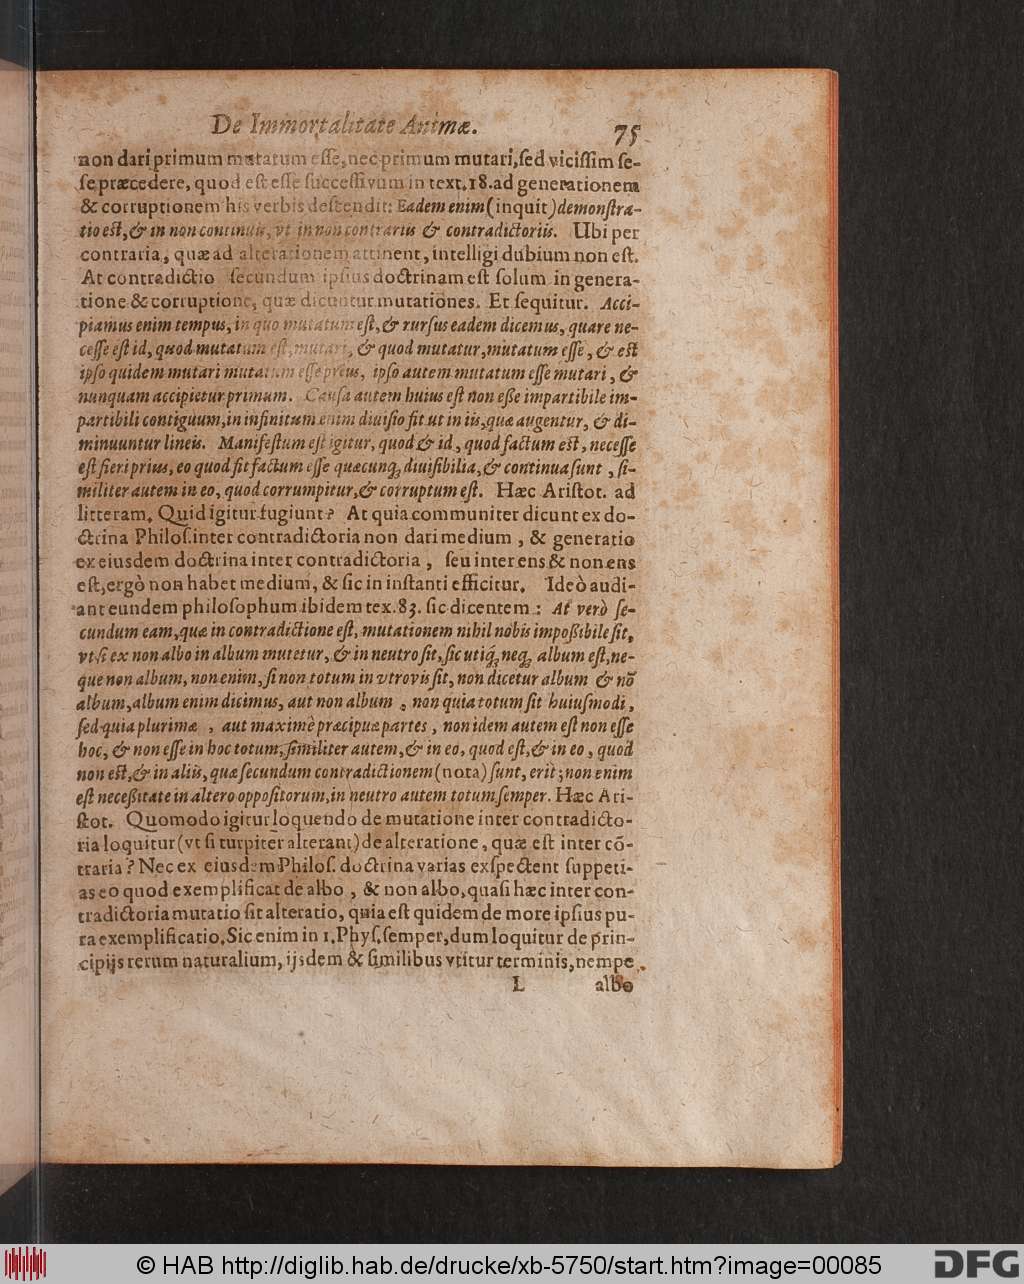 De Immortalitate Animæ.
75
non dari primum mutatum eſſe, nec primum mutari, ſed viciſſim ſe-
ſe præcedere, quod eſt eſſe ſucceſſivum in text. 18. ad generationem
& corruptionem his verbis deſcendit: Eadem enim (inquit) demonſtra-
tio eſt, & in non continuis, vt in non contrariis & contradictoriis. Ubi per
contraria, quæ ad alterationem attinent, intelligi dubium non eſt.
At contradictio ſecundum ipſius doctrinam eſt ſolum in genera-
tione & corruptione, quæ dicuntur mutationes. Et ſequitur. Acci-
piamus enim tempus, in quo mutatum eſt, & rurſus eadem dicemus, quare ne-
ceſſe eſt id, quod mutatum eſt, mutari, & quod mutatur, mutatum eſſe, & eſt
ipſo quidem mutari mutatum eſſe prius, ipſo autem mutatum eſſe mutari, &
nunquam accipietur primum. Cauſa autem huius eſt non eſſe impartibile im-
partibili contiguum, in infinitum enim diuiſio fit ut in iis, quæ augentur, & di-
minuuntur lineis. Manifeſtum eſt igitur, quod & id, quod factum eſt, neceſſe
eſt fieri prius, eo quod fit factum eſſe quæcunq; diuiſibilia, & continua ſunt, ſi-
militer autem in eo, quod corrumpitur, & corruptum eſt. Hæc Ariſtot. ad
litteram. Quid igitur fugiunt? At quia communiter dicunt ex do-
ctrina Philoſ. inter contradictoria non dari medium, & generatio
ex eiusdem doctrina inter contradictoria, ſeu inter ens & non ens
eſt, ergò non habet medium, & ſic in inſtanti efficitur. Ideò audi-
ant eundem philoſophum ibidem tex. 83. ſic dicentem: At verò ſe-
cundum eam, quæ in contradictione eſt, mutationem nihil nobis impoſſibile fit,
vt ſi ex non albo in album mutetur, & in neutro fit, ſic utiq; neq; album eſt, ne-
que non album, non enim, ſi non totum in vtrovis ſit, non dicetur album & nõ
album, album enim dicimus, aut non album, non quia totum ſit huiuſmodi,
ſed quia plurimæ, aut maximè præcipuæ partes, non idem autem eſt non eſſe
hoc, & non eſſe in hoc totum, ſimiliter autem, & in eo, quod eſt, & in eo, quod
non eſt, & in aliis, quæ ſecundum contradictionem (nota) ſunt, erit; non enim
eſt neceſſitate in altero oppoſitorum, in neutro autem totum ſemper. Hæc Ari-
ſtot. Quomodo igitur loquendo de mutatione inter contradicto-
ria loquitur (vt ſi turpiter alterant) de alteratione, quæ eſt inter cõ-
traria? Nec ex eiusdem Philoſ. doctrina varias exſpectent ſuppeti-
as eo quod exemplificat de albo, & non albo, quaſi hæc inter con-
tradictoria mutatio ſit alteratio, quia eſt quidem de more ipſius pu-
ra exemplificatio. Sic enim in 1. Phyſ. ſemper, dum loquitur de prin-
cipijs rerum naturalium, ijsdem & ſimilibus vtitur terminis, nempe
L albo
© HAB http://diglib.hab.de/drucke/xb-5750/start.htm?image=00085
DFG